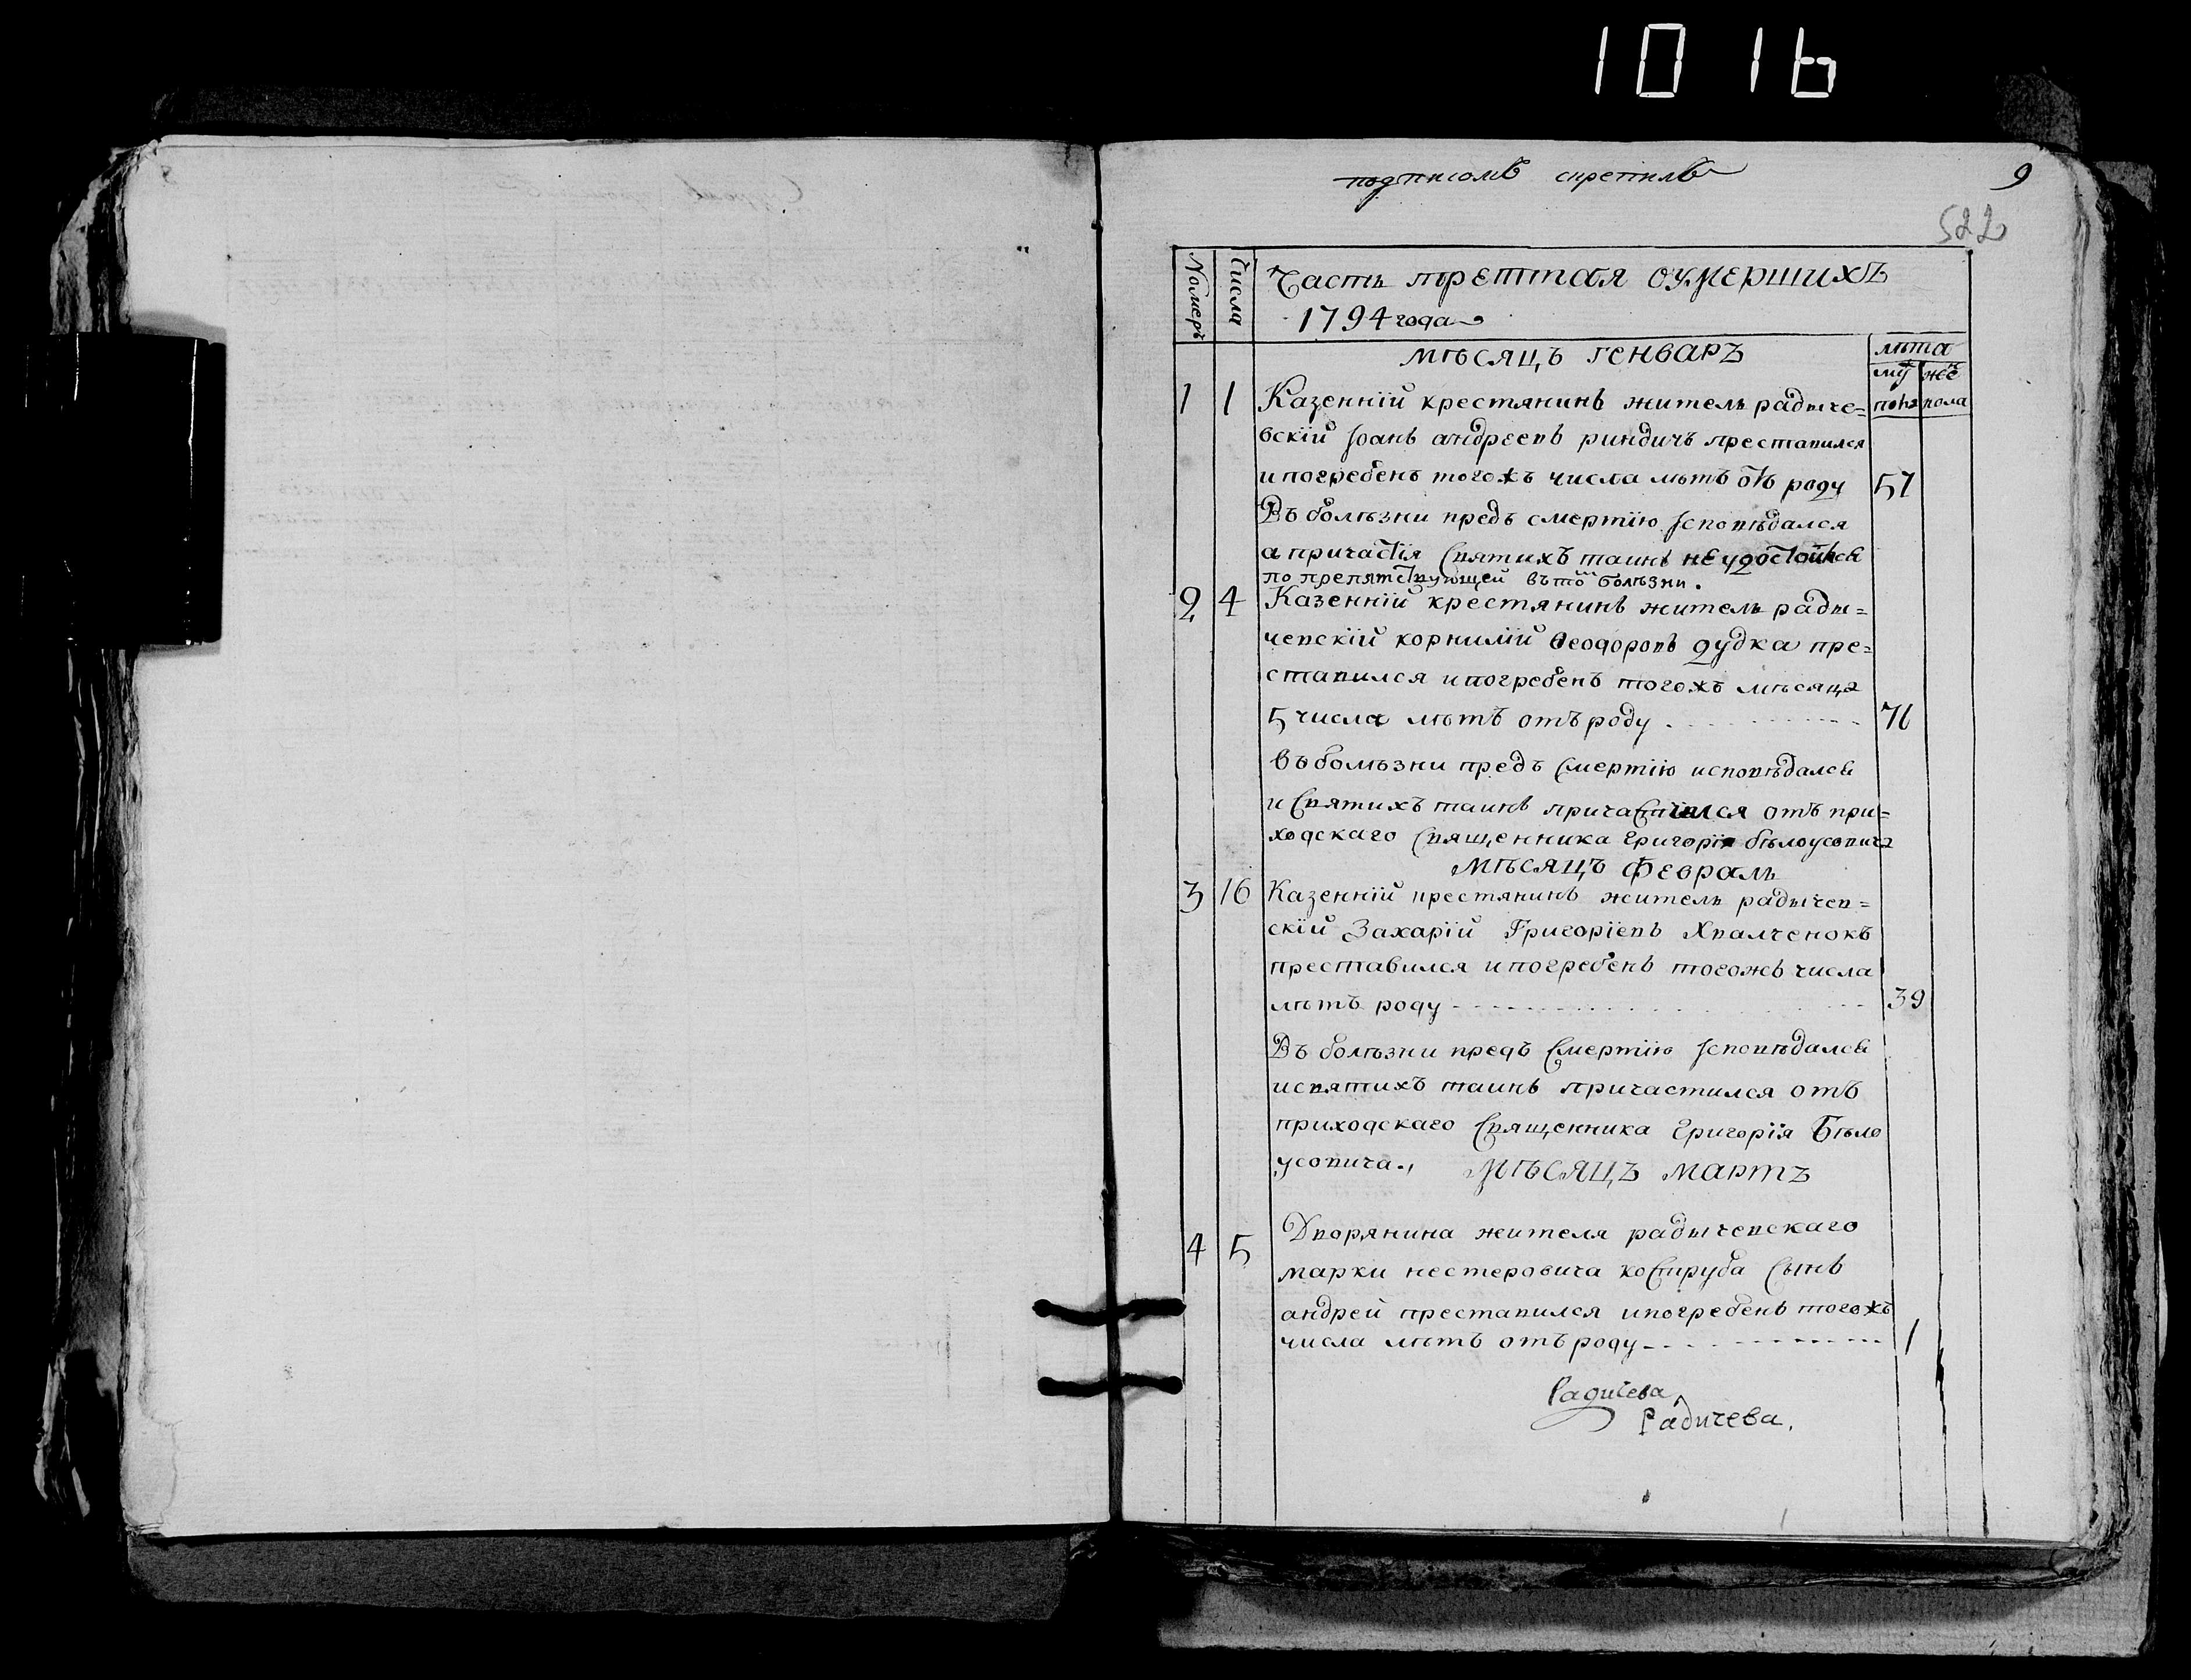 1016
подписомъ скрепилъ
9
522
Номеръ Числа Часть треттая оумершихъ
1794 года
мѣсяцъ генваръ лѣта
му пола же пола
1 1 Казенній крестянинъ житель радыче=
вскій Іоанъ андреевъ риндичъ преставился
и погребенъ тогожъ числа лѣтъ отъ роду 57
Въ болѣзни предъ смертіюІсповѣдался
а причастія Святихъ таинъ не удостоился
по препятствующей въ той болѣзни.
2 4 Казенній крестянинъ житель рады=
чевскій корнилій Ѳеодоровъ дудка пре=
ставился и погребенъ тогожъ мѣсяца
5 числа лѣтъ отъ роду 71
въ болѣзни предъ Смертію исповѣдался
и Святихъ таинъ причастился отъ при=
ходскаго Священника Григорія бѣлоусовича
мѣсяцъ Февраль
3 16 Казенній крестянинъ житель радычев=
скій Захарій Григоріевъ Хвалченокъ
преставился и погребенъ тогожъ числа
лѣтъ роду 39
Въ болѣзни предъ Смертію Ісповѣдался
и святихъ таинъ причастился отъ
приходскаго Священника Григорія Бѣло
усовича., мѣсяцъ мартъ
4 5 Дворянина жителя радычевскаго
марки нестеровича коструба Сынъ
андрей преставился и погребенъ тогожъ
числа лѣтъ отъ роду 1
Радичева
Радичева.